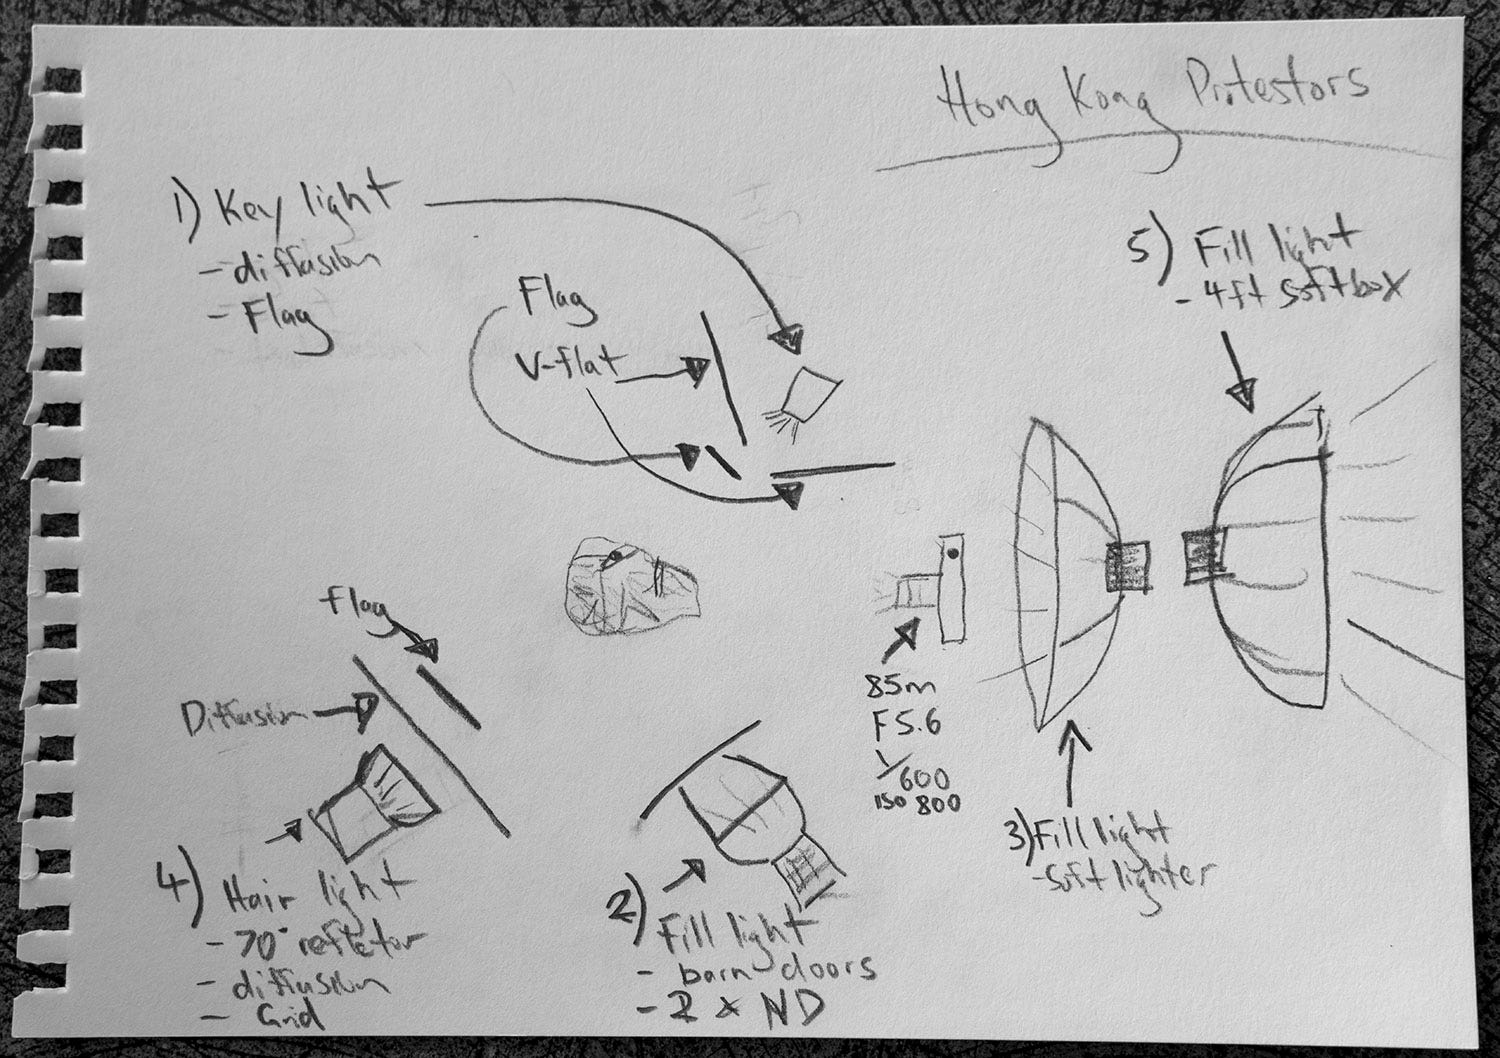 Hong Kong Protestors
1) Key light
- diffusion
- Flag
Flag
V-flat
5) Fill light
- 4ft softbox
flag
Diffusion
85m
F5.6
1/600
ISO 800
3) Fill light
- Soft lighter
4) Hair light
- 70° reflector
- diffusion
- Grid
2) Fill light
- barn doors
- 2 x ND